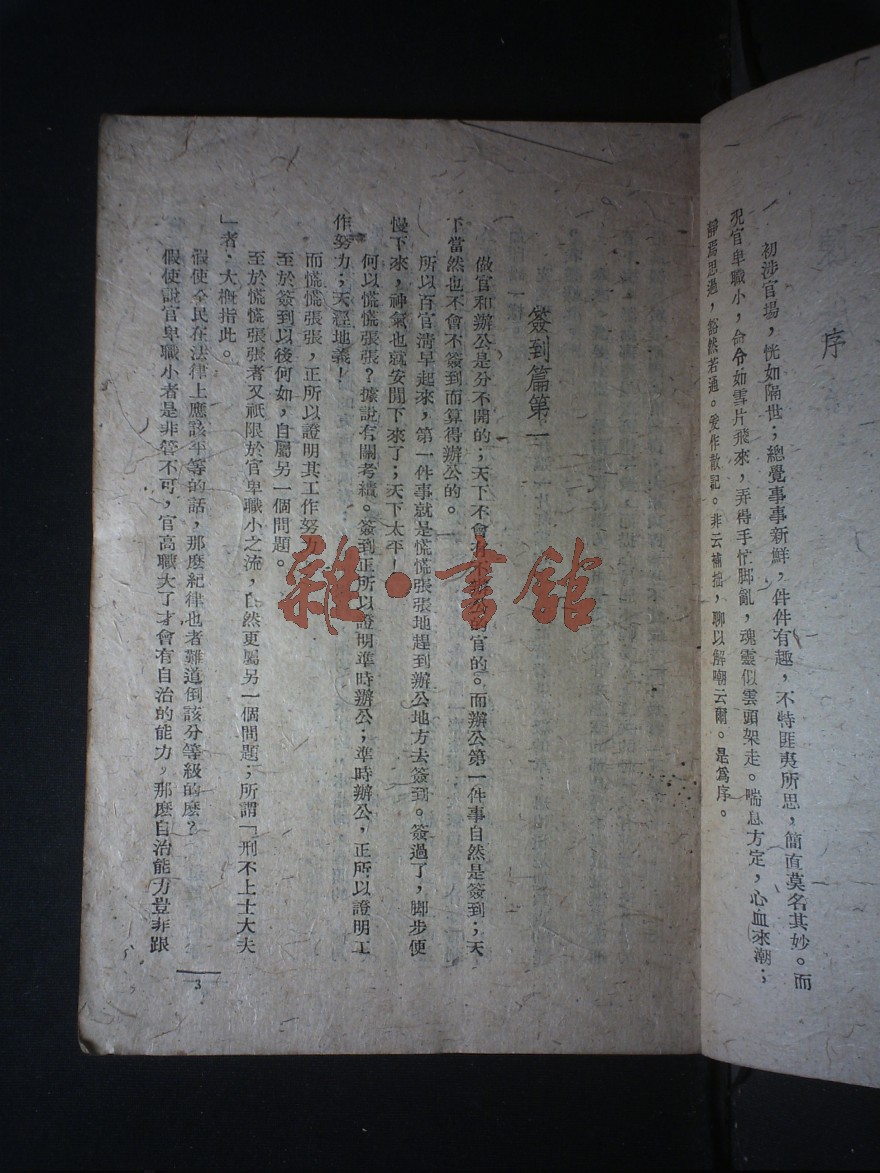 序
一　初涉官場，恍如隔世；總覺事事新鮮，件件有趣，不特匪夷所思，簡直莫名其妙。而
況官卑職小，命令如雪片飛來，弄得手忙脚亂，魂靈似雲頭架走。喘息方定，心血來潮；
靜焉思過，豁然若通。爰作散記。非云補拙，聊以解嘲云爾。是爲序。
簽到篇第二
做官和辦公是分不開的；天下不會有不辦公的官的。而辦公第一件事自然是簽到；天
下當然也不會不簽到而算得辦公的。
所以百官清早起來，第一件事就是慌慌張張地趕到辦公地方去簽到。簽過了，脚步便
慢下來，神氣也就安閒下來了；天下太平！
何以慌慌張張？據說有關考績。簽到正所以證明準時辦公；準時辦公，正所以證明工
作努力；天經地義！
而慌慌張張，正所以證明其工作努力
至於簽到以後何如，自屬另一個問題。
至於慌慌張張者又祇限於官卑職小之流，自然更屬另一個問題；所謂「刑不上士大夫
」者，大概指此。
假使全民在法律上應該平等的話，那麽紀律也者難道倒該分等級的麽？
假使說官卑職小者是非管不可，官高職大了才會有自治的能力，那麽自治能力豈非跟
3
雜·書館